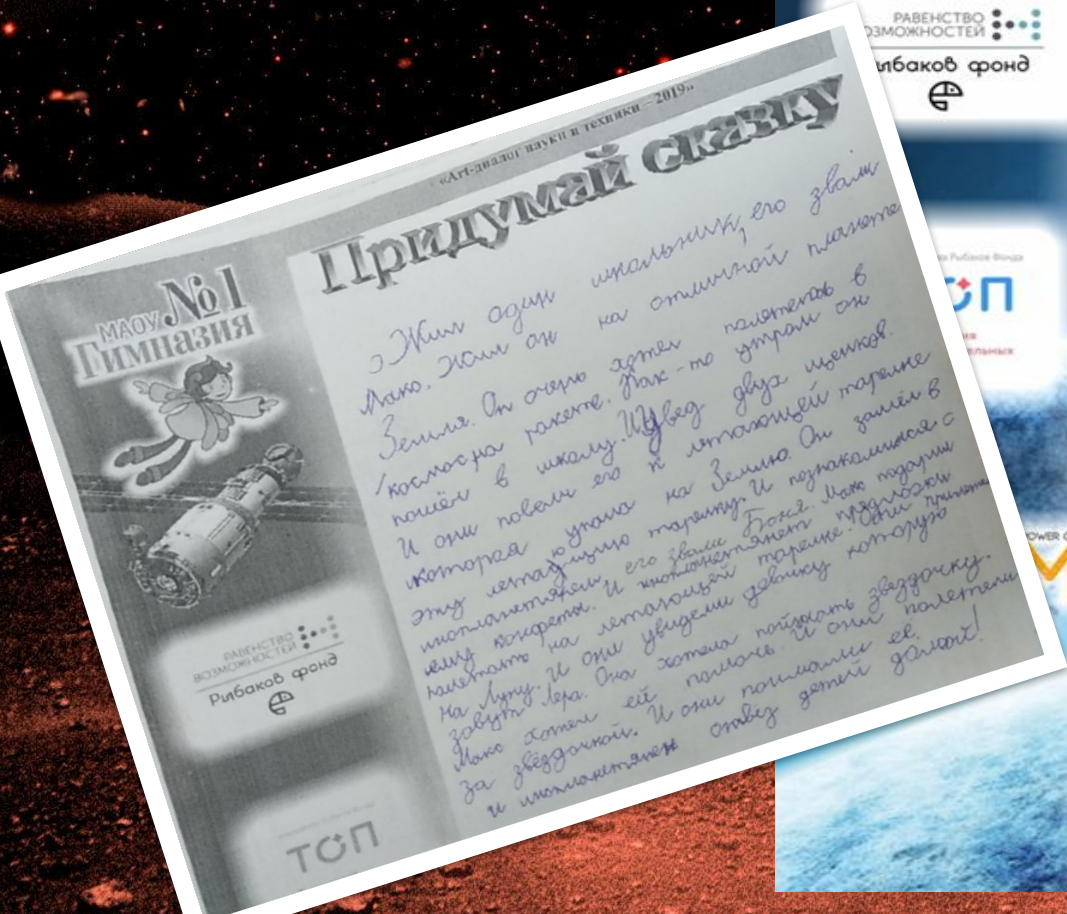 РАВЕНСТВО
ВОЗМОЖНОСТЕЙ
Рыбаков фонд
«Art-диалог науки и техники – 2019»
Придумай сказку
МАОУ №1
Гимназия
Жил один школьник, его звали
Мако. Жил он на отличной планете
Земля. Он очень хотел полететь в
космос на ракете. Как-то утром он
пошёл в школу. И увед двух щенков.
И они повели его к летающей тарелке
которая упала на Землю. Он залел в
эту летающую тарелку. И познакомился с
инопланетянем, его звали Боня. Мако подарил
ему конфеты. И инопланетянен предложил
полетать на летающей тарелке. Они прилетели
на Луну. И они увидели девочку которую
зовут Лера. Она хотела поймать звездочку.
Мако хотел ей помочь. И они полетели
за звёздочкой. И они поймали её.
и инопланетянен отвёз детей домой!
РАВЕНСТВО
ВОЗМОЖНОСТЕЙ
Рыбаков фонд
ТОП
Рыбаков Фонда
ОП